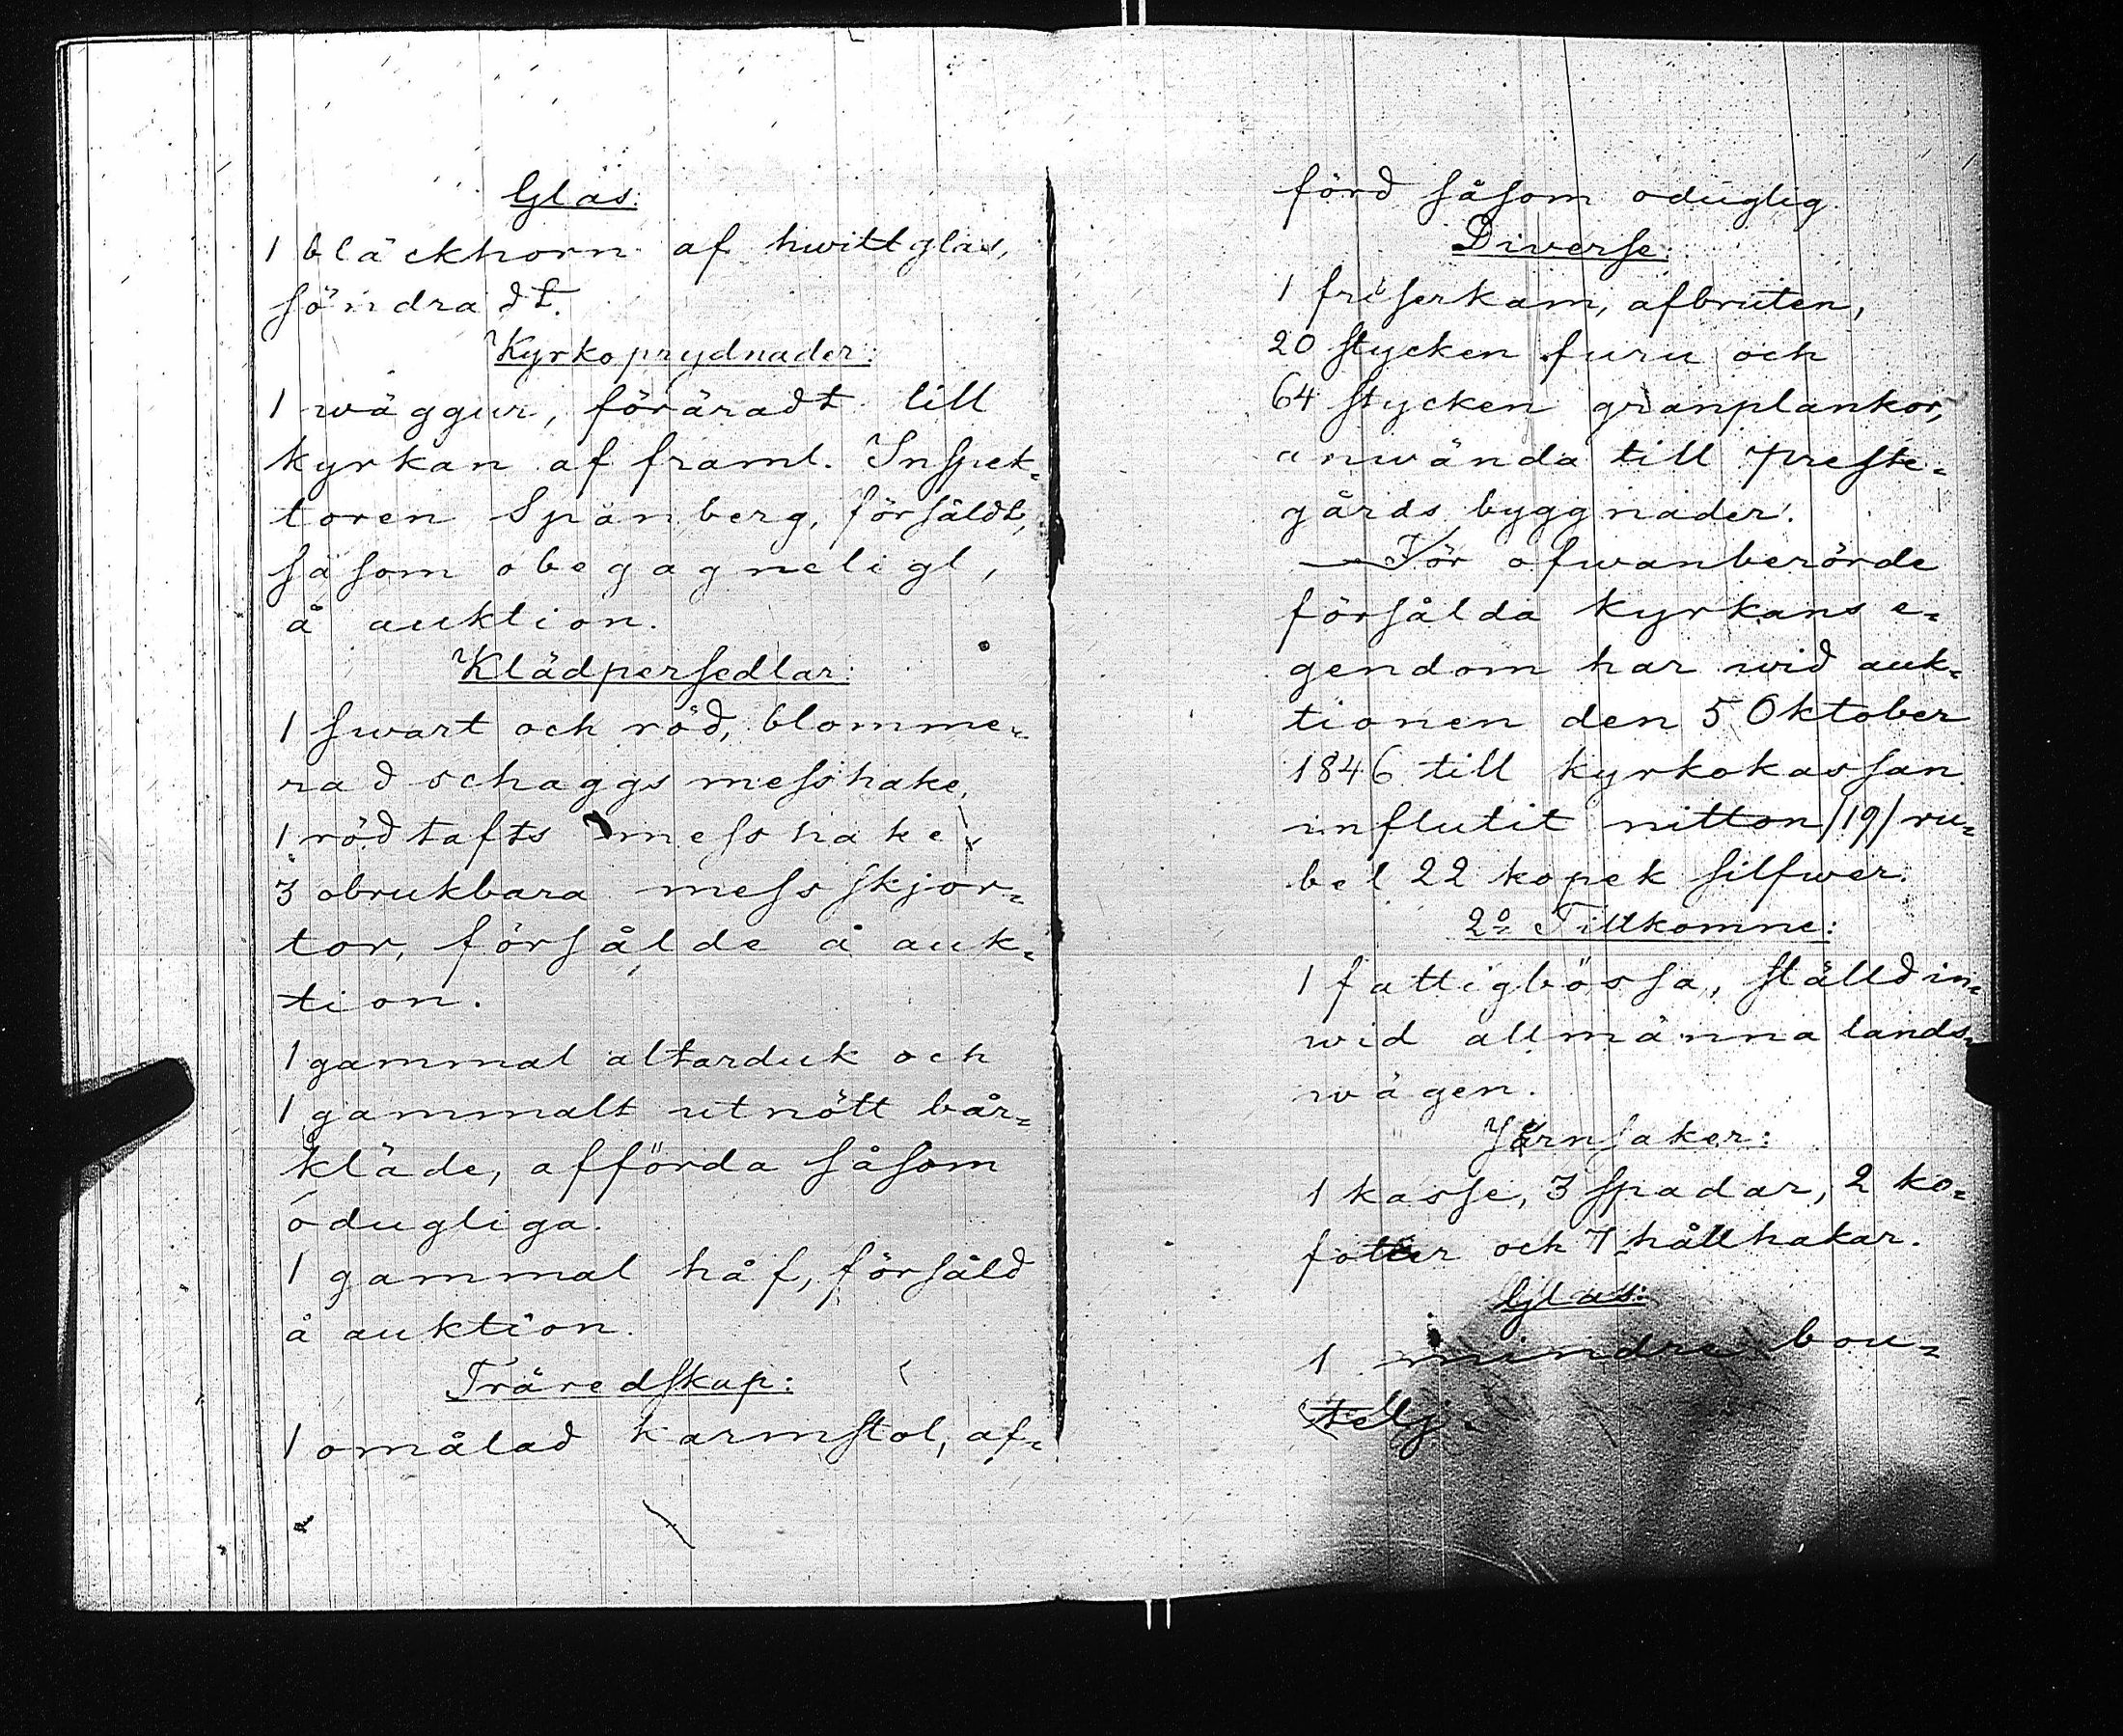 Glas:
1 bläckhorn af hwitt glas,
söndradt.
Kyrkoprydnader:
1 wäggur, förärådt till
kyrkan af framl. Inspek-
toren Spånberg, försåldt,
såsom obegagneligt,
å auktion.
Klädpersedlar:
1 swart och röd, blomme-
rad schaggs messhake,
1 röd tafts messhake,
3 obrukbara messskjor-
tor, försålde å auk-
tion.
1 gammal altarduk och
1 gammalt utnött bår-
kläde, afförda såsom
odugliga.
1 gammal håf, försåld
å auktion.
Träredskap:
1 omålad karmstol, af-
förd såsom oduglig.
Diverse:
1 friserkam, afbruten,
20 stycken furu och
64 stycken granplankor,
använda till preste-
gårds byggnader.
— För ofwanberörde
försålda kyrkans e-
gendom har wid auk-
tionen den 5 Oktober
1846 till kyrkokassan
influtit nitton /19/ ru-
bel 22 kopek silfwer.
2o Tillkomne:
1 fattigbössa, ställd in-
wid allmänna lands-
wägen.
Järnsaker:
1 kasse, 3 spadar, 2 ko-
fötter och 7 hållhakar.
Glas:
1 mindre bou-
telj.